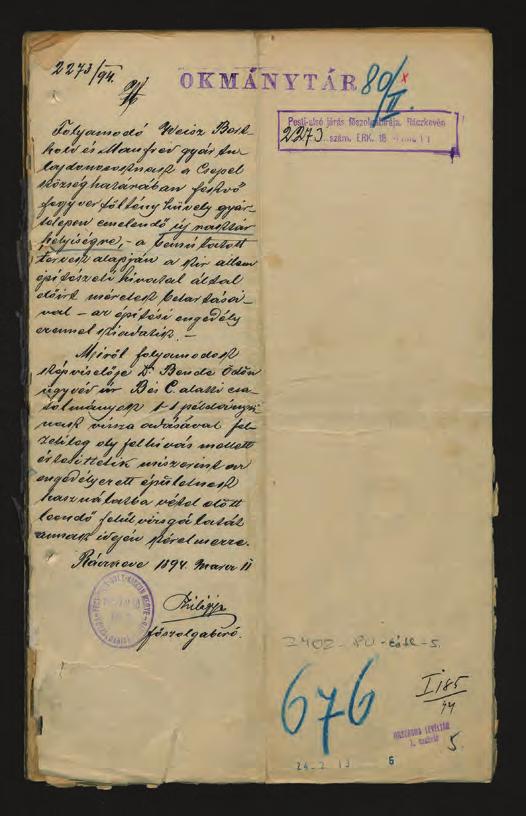 2273/94.
OKMÁNYTÁR
80/II.
Pesti-alsó járás főszolgabírája, Ráczkevén
2273 szám. ERK. 18
Folyamodó Weisz Bert-
hold és Manfred gyár tu-
lajdonosoknak a Csepel
község határában fekvő
fegyver töltény hüvely gyár-
telepen emelendő új raktár
helyiségre, - a bemutatott
tervek alapján a kir. állam
építészeti hivatal által
előírt méretek betartásá-
val - az építési engedély
ezennel kiadatik. -
Miről folyamodók
képviselője Dr Bende Ödön
ügyvéd úr B és C. alatti csa-
tolmányok 1-1 példányá-
nak vissza adásával fel-
zetileg oly felhívás mellett
értesíttetik miszerint az
engedélyezett épületnek
használatba vétel előtt
leendő felülvizsgálatát
annak idején kérelmezze.
Ráczkeve 1894. Marcz 11
főszolgabíró.
676
I 185/94
ORSZÁGOS LEVÉLTÁR
5.
6